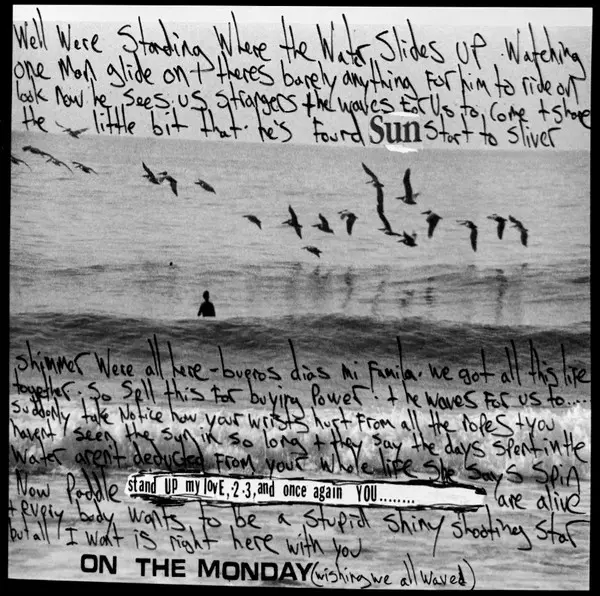 Well Were Standing Where the Water Slides up. Watching
one man glide on + theres barely anything For him to ride on
look now he sees us strangers + he waves For us to come + share
the little bit that he's Found Sun Start to Sliver
Shimmer Were all here - bueros dias mi Famila. We got all this life
together. So Sell this For buying Power! + he waves For us to....
Suddenly take Notice how your wrists hurt From all the ropes + you
havent seen the Sun in so long + they say the days spent in the
Water arent deducted From your whole life She Says Spin
Now Paddle stand UP my lovE,.2.3,and once again YOU........ are alive
+ every body wants to be a stupid shiny shooting Star
but all I want is right here with you
ON THE MONDAY (wishing we all waved)